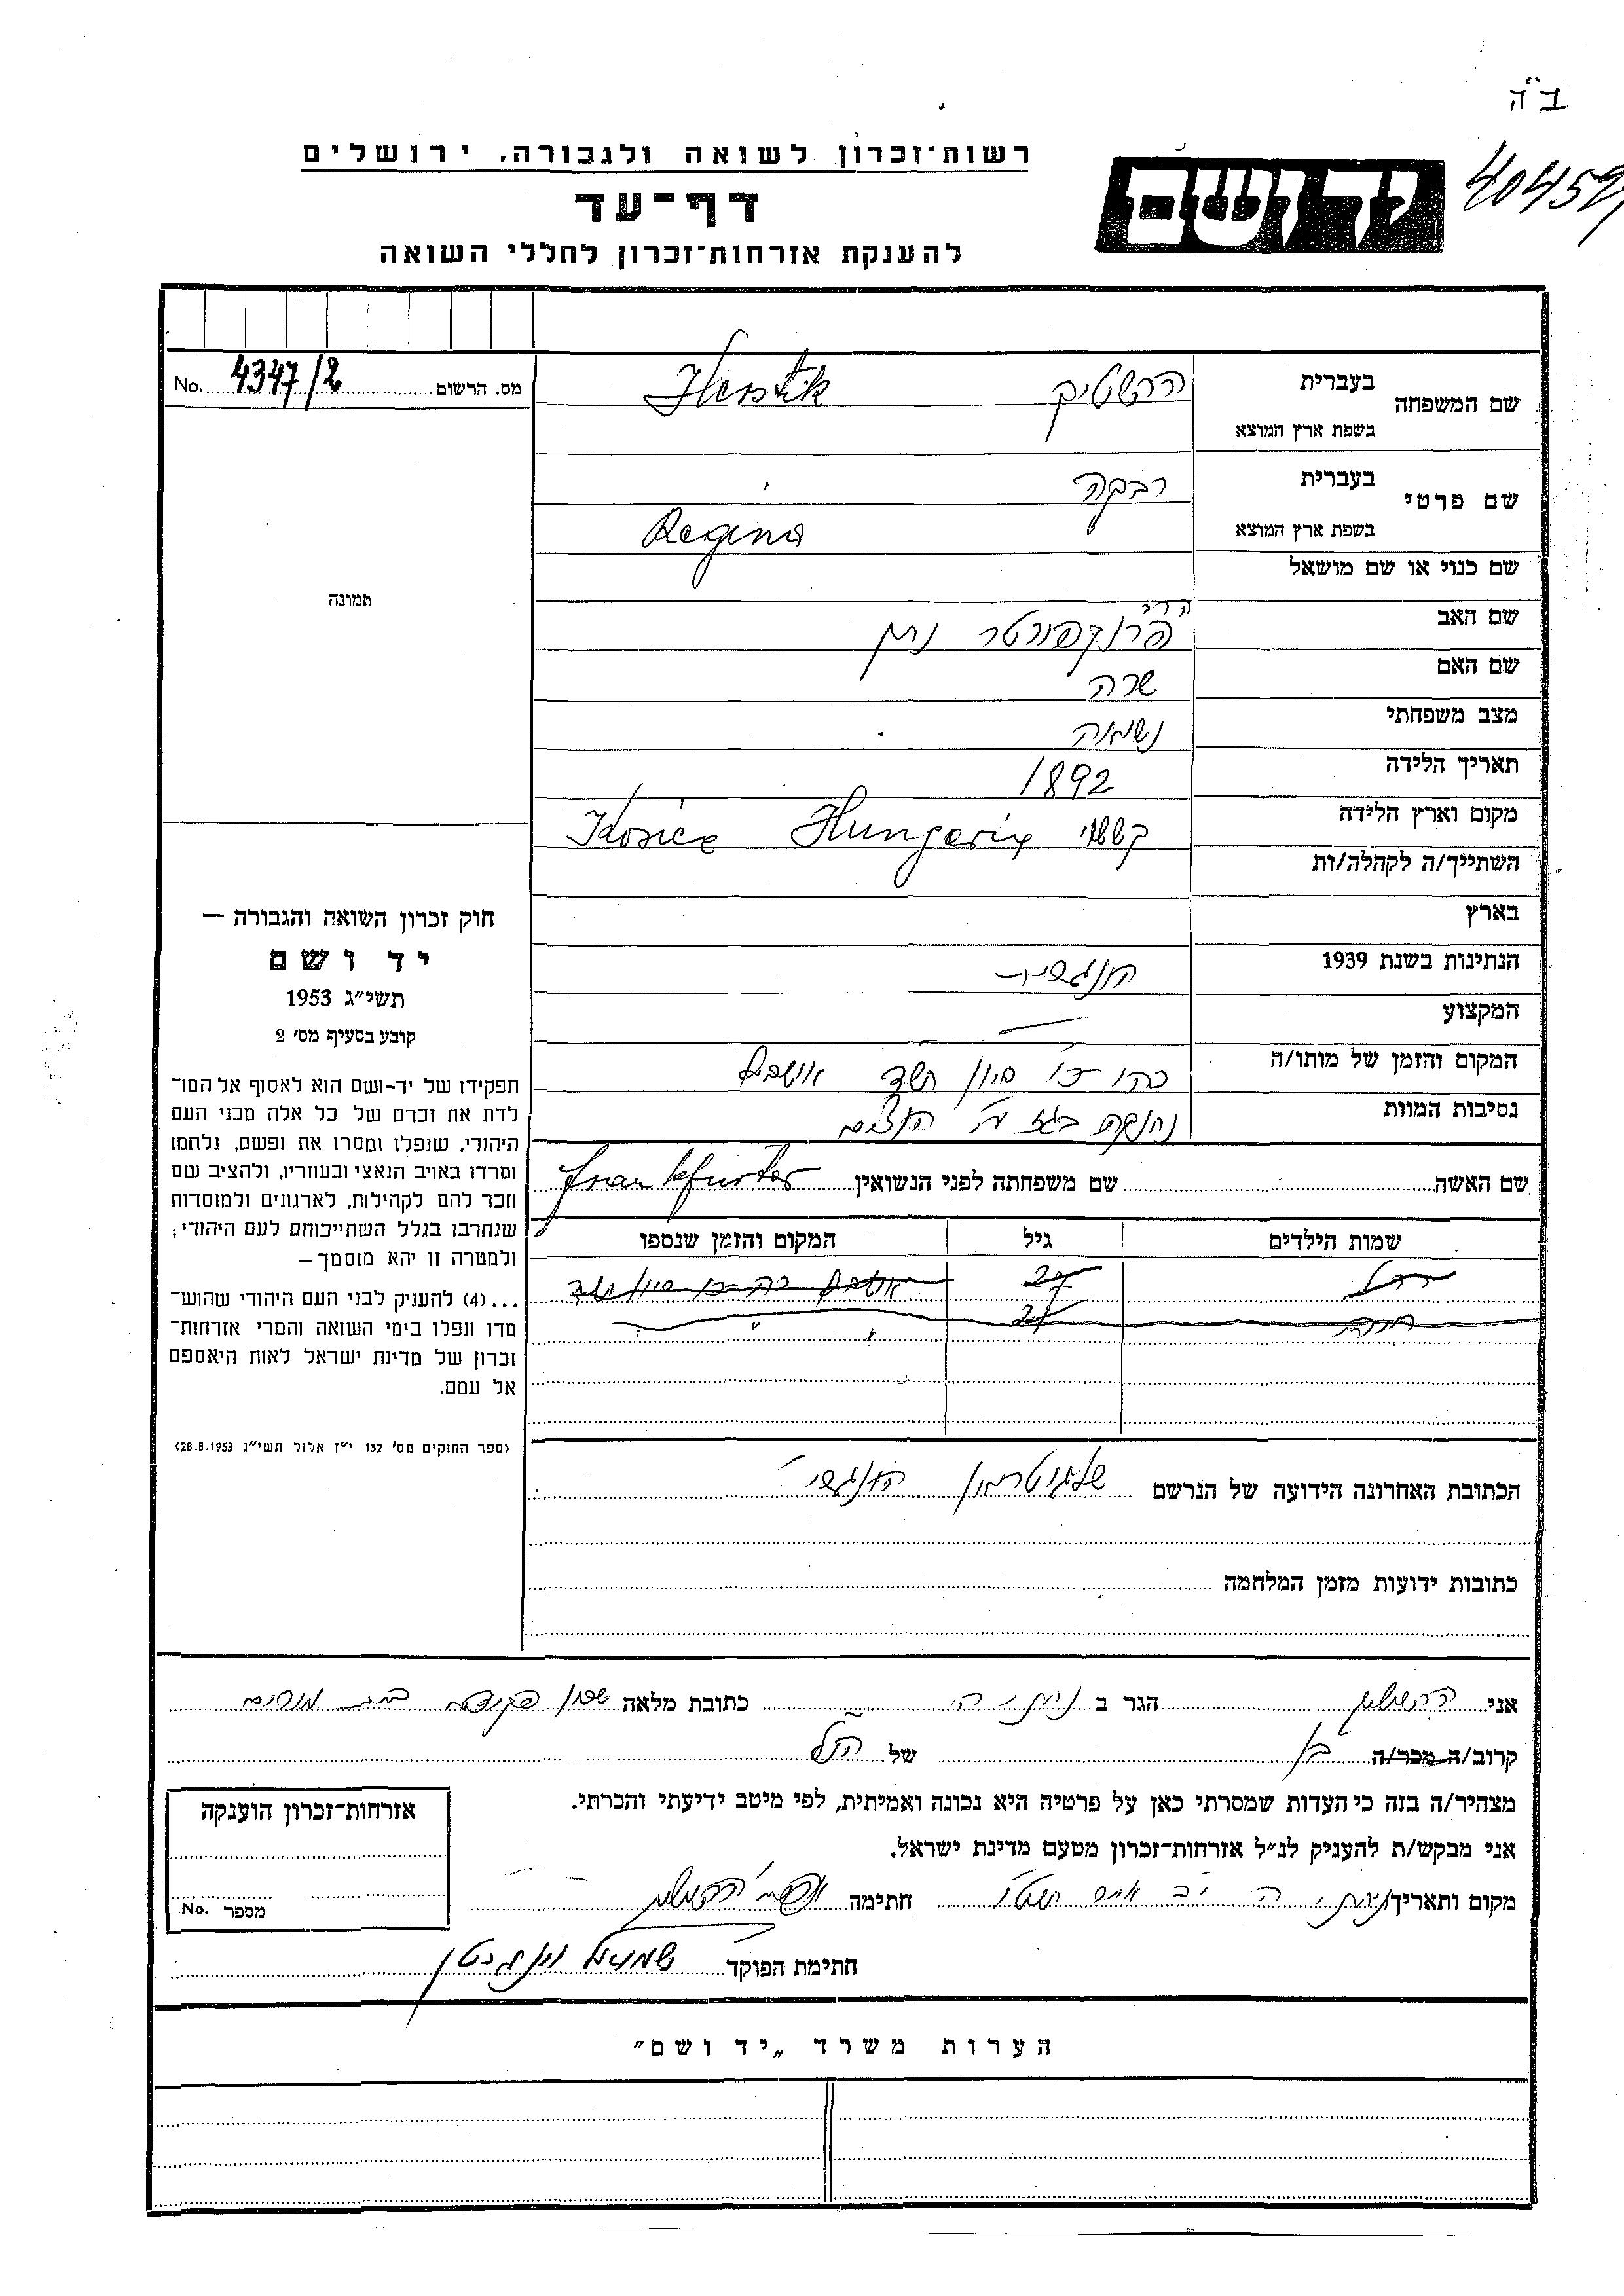 ב"ה
40459
רשות־זכרון לשואה ולגבורה, ירושלים
יד ושם
דף־עד
להענקת אזרחות־זכרון לחללי השואה
No. 4347/2 מס. הרשום
שם המשפחה בעברית הרשטיק Herstik
בשפת ארץ המוצא
שם פרטי בעברית רבקה
בשפת ארץ המוצא Regina
שם כנוי או שם מושאל
תמונה
שם האב פרנקפורטר נתן
שם האם שרה
מצב משפחתי נשואה
תאריך הלידה 1892
מקום וארץ הלידה Hungaria Kosice
השתייך/ה לקהלה/ות
בארץ
הנתינות בשנת 1939
המקצוע —
המקום והזמן של מותו/ה סיון תשד
נסיבות המוות
שם האשה שם משפחתה לפני הנשואין Frankfurter
שמות הילדים גיל המקום והזמן שנספו
רחל 27
27
הכתובת האחרונה הידועה של הנרשם
כתובות ידועות מזמן המלחמה
חוק זכרון השואה והגבורה —
יד ושם
תשי״ג 1953
קובע בסעיף מס׳ 2
תפקידו של יד-ושם הוא לאסוף אל המו־
לדת את זכרם של כל אלה מבני העם
היהודי, שנפלו ומסרו את נפשם, נלחמו
ומרדו באויב הנאצי ובעוזריו, ולהציב שם
וזכר להם לקהילות, לארגונים ולמוסדות
שנחרבו בגלל השתייכותם לעם היהודי;
ולמטרה זו יהא מוסמך—
...(4) להעניק לבני העם היהודי שהוש־
מדו ונפלו בימי השואה והמרי אזרחות־
זכרון של מדינת ישראל לאות היאספם
אל עמם.
(ספר החוקים מס׳ 132 י״ז אלול תשי״ג 28.8.1953)
אני הרשטיק הגר ב כתובת מלאה
קרוב/ה מכר/ה בן של הנ"ל
מצהיר/ה בזה כי העדות שמסרתי כאן על פרטיה היא נכונה ואמיתית, לפי מיטב ידיעתי והכרתי.
אני מבקש/ת להעניק לנ״ל אזרחות־זכרון מטעם מדינת ישראל.
מקום ותאריך חתימה הרשטיק
חתימת הפוקד שמואל
אזרחות־זכרון הוענקה
No. מספר
הערות משרד „יד ושם״